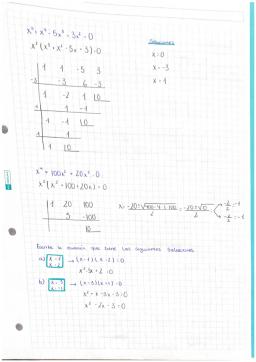 x⁵+x⁴-5x³+3x²=0
x²(x³+x²-5x+3)=0
Soluciones
x=0
x=-3
x=1
1 1 -5 3
-3 -3 6 -3
1 -2 1 |0
1 1 -1
1 -1 |0
1 1
1 |0
x⁴+100x²+20x³=0
x²(x²+100+20x)=0
1 20 100
Escribe la ecuación que tiene las siguientes soluciones
a) x=1
x=2
→(x-1)(x-2)=0
x²-3x+2=0
b) x=3
x=-1
→(x-3)(x+1)=0
x²+x-3x-3=0
x²-2x-3=0